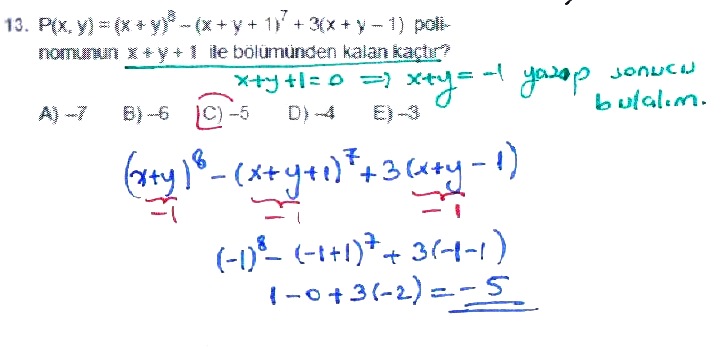 13. P(x, y) = (x + y)⁸ – (x + y + 1)⁷ + 3(x + y – 1) poli-
nomunun x + y + 1 ile bölümünden kalan kaçtır?
x+y+1=0 => x+y=-1 yazıp sonucu
bulalım.
A) –7 B) –6 C) –5 D) –4 E) –3
(x+y)⁸ - (x+y+1)⁷ + 3(x+y-1)
-1 -1 -1
(-1)⁸ - (-1+1)⁷ + 3(-1-1)
1-0+3(-2) = -5